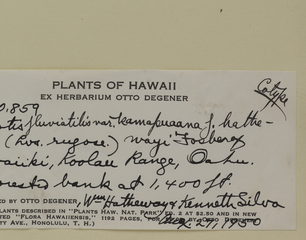 PLANTS OF HAWAII
EX HERBARIUM OTTO DEGENER
Cotype
0,859
fluviatilis var. kamapuaana f. hathe-
(Lvs. rugose) wayi Fosberg
Koolau Range, Oahu.
forested bank at 1,400 ft.
ED BY OTTO DEGENER, Wm Hatheway & Kenneth Silva
NTS DESCRIBED IN "PLANTS HAW. NAT. PARK" ED. 2 AT $2.50 AND IN NEW
TED "FLORA HAWAIIENSIS," 1192 PAGES, FOR
TY AVE., HONOLULU, T. H.) Aug. 27, 1950